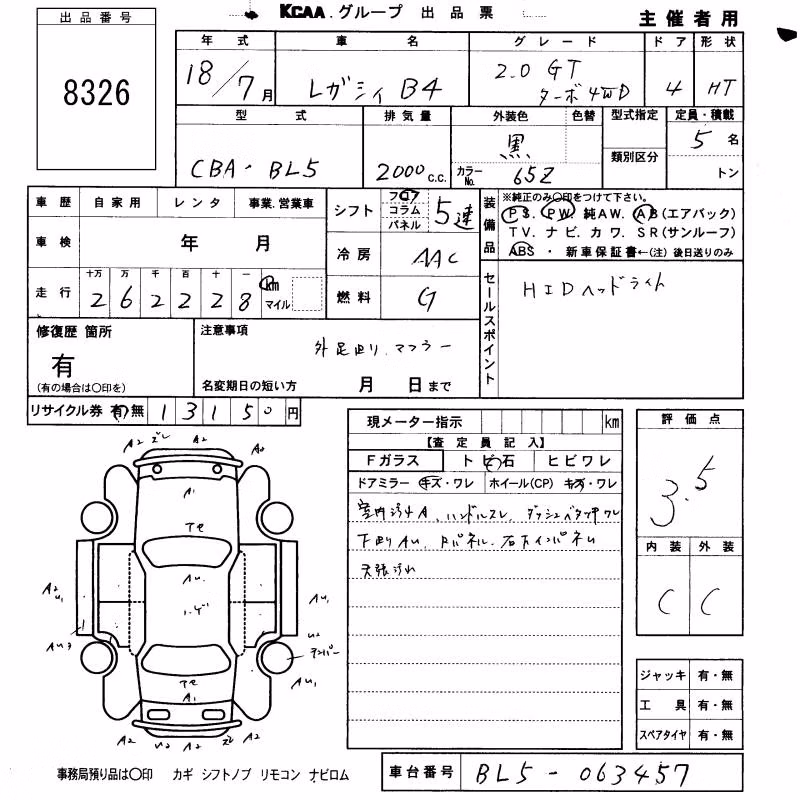 KCAA.グループ 出品票
主催者用
出品番号
8326
年式
18/7月
車名
レガシィ B4
グレード
2.0 GT
ターボ 4WD
ドア
4
形状
HT
型式
CBA-BL5
排気量
2000 c.c.
外装色
黒
色替
カラーNo.
65Z
型式指定
類別区分
定員・積載
5名
トン
車歴 自家用 レンタ 事業.営業車
車検 年 月
走行 十万 万 千 百 十 一
2 6 2 2 2 8 km
マイル
シフト
フロア
コラム
パネル
5速
冷房
AAC
燃料
G
装備品
※純正のみ○印をつけて下さい。
PS. PW. 純AW. AB(エアバック)
TV. ナビ. カワ. SR(サンルーフ)
ABS ・ 新車保証書←(注) 後日送りのみ
セールスポイント
HIDヘッドライト
修復歴 箇所
有
(有の場合は○印を)
注意事項
外足廻り、マフラー
名変期日の短い方 月 日まで
リサイクル券 有・無 13150円
現メーター指示 km
【査定員記入】
Fガラス トビ石 ヒビワレ
ドアミラー キズ・ワレ ホイール(CP) キズ・ワレ
室内汚れA、ハンドルスレ、ダッシュベタつキワレ
下廻りAu、
天張汚れ
評価点
3.5
内装 外装
C C
ジャッキ 有・無
工具 有・無
スペアタイヤ 有・無
A2 ズレ A2 A2
A1
A2 U1
Au3
Au1
U2
Au1
A1
A2 U2 A2 A2
事務局預り品は○印 カギ シフトノブ リモコン ナビロム
車台番号 BL5-063457